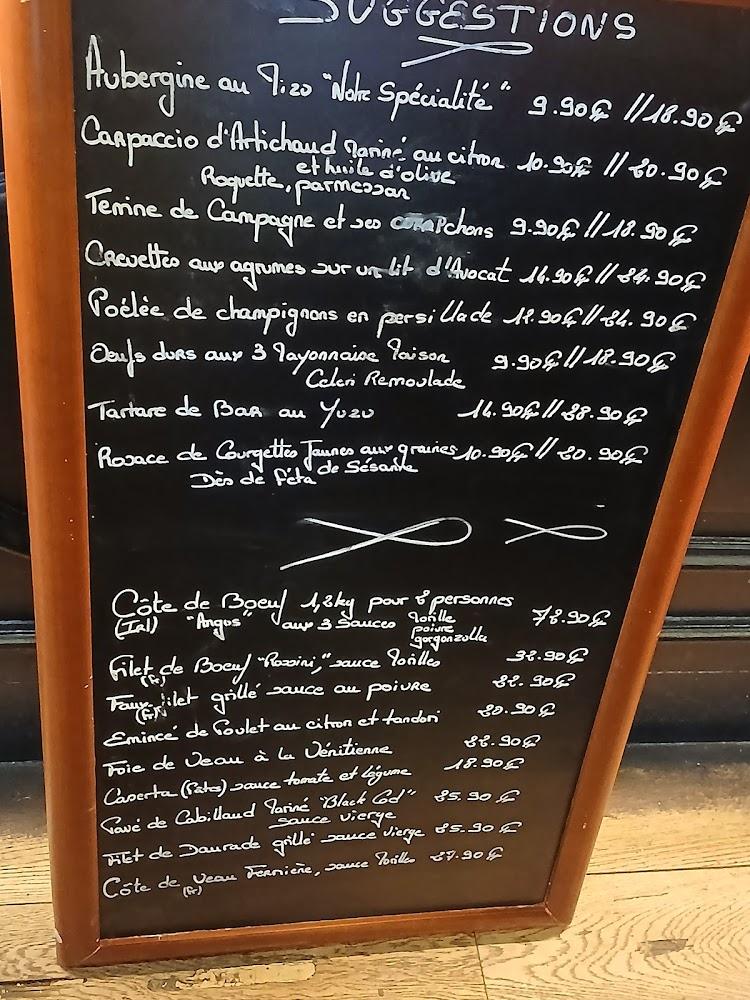 SUGGESTIONS
Aubergine au Mizo "Notre Spécialité" 9.90€ // 18.90€
Carpaccio d'Artichaud Mariné au citron 10.90€ // 20.90€
et huile d'olive
Roquette, parmessan
Terrine de Campagne et ses cornichons 9.90€ // 18.90€
Crevettes aux agrumes sur un lit d'Avocat 14.90€ // 24.90€
Poêlée de champignons en persillade 12.90€ // 24.90€
Oeufs durs aux 3 Mayonnaise Maison 9.90€ // 18.90€
Celeri Remoulade
Tartare de Bar au Yuzu 14.90€ // 28.90€
Rosace de Courgettes Jaunes aux graines 10.90€ // 20.90€
de Sésame
Dès de féta
Côte de Boeuf 1,2kg pour 2 personnes 78.90€
(Irl) "Angus" aux 3 sauces Morille
poivre
gorgonzolla
Filet de Boeuf "Rossini", sauce Morilles 32.90€
(Fr)
Faux-filet grillé sauce au poivre 22.90€
(Fr)
Emincé de Poulet au citron et tandori 20.90€
Foie de Veau à la Vénitienne 22.90€
Caserta (Pâtes) sauce tomate et légume 18.90€
Pavé de Cabillaud Mariné "Black Cod" 25.90€
sauce vierge
Filet de Daurade grillé sauce vierge 25.90€
Côte de Veau Fermière, sauce Morilles 27.90€
(Fr)